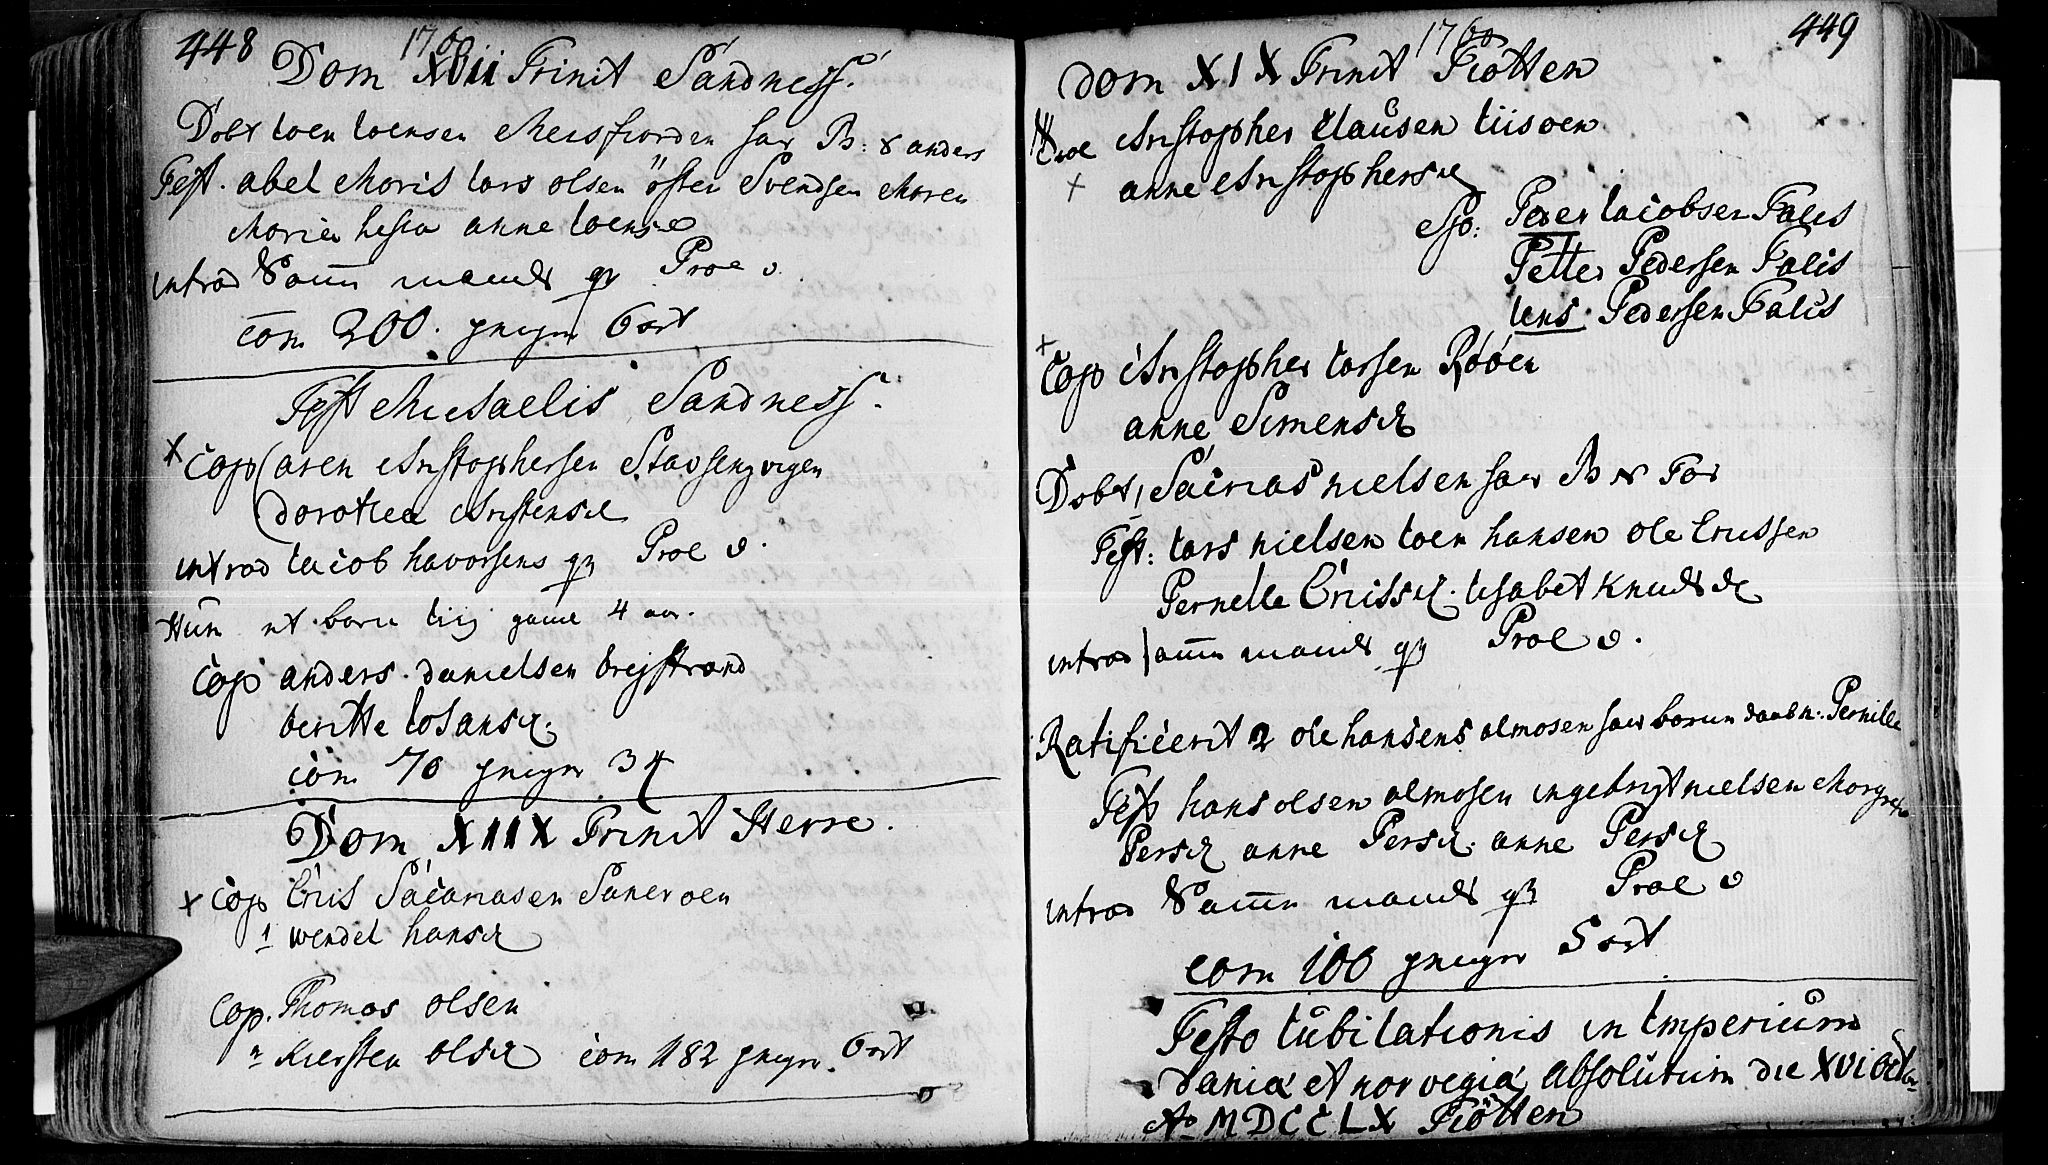 448
1760
Dom XVII Trinit Sandness.
Döbt Joen Joensen Meisfiorden har B: &amp; anders
Test. abel Moris Lars olsen östen Svendsen Maren
hesta anne Joensd
introd Samm mands qv Proe d.
com 200. pneym 6 ort
Fest Michaelis Sandness.
x Cop Caren Christophersen
dorothea Christensd
introd Jacob havorsens qv Proe d.
4 aar.
Cop anders danielsen breystrand
beritte Johansd.
com 70 pneym 34
Dom XIIX Trinit Herre.
x Cop Cris Sacariasen
1 wendel hansd
Cop. Thomas olsen
2 Kiersten olsd com 182 pneym. 6 ort
449
1760
dom XIX Trinit Tiötten
Troe Christopher Clausen
x anne Christophersd
Spo: Peder Jacobsen Falis
Petter Pedersen Falis
Jens Pedersen Falis
x
Cop Christopher Larsen Röÿen
anne Simensd
Döbt, Sacrias nielsen har B N For
Test: Lars nielsen Joen hansen ole Crissen
Pernelle Crissd. Lisabet Knudsd
introd Samm mands qv Proe d.
Ratificerit 2 ole hansens almosen har barn daabn: Pernille
Test hans olsen almosen ingebrigt nielsen Margrete
Persd anne Persd. anne Persd
introd Samm mands qv Proe d
com 100 pneym 5 ort
Festo Jubilationis in Imperium
Daniæ et norvegiæ absolutum die XVI Octbr
Ao MDCCLX Tiötten